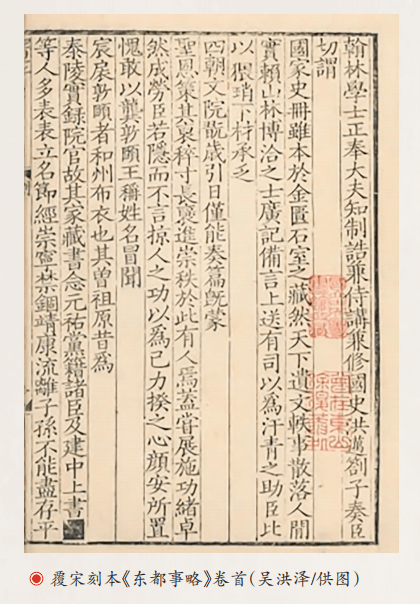 翰林學士正奉大夫知制誥兼侍講兼修國史洪邁劄子奏臣
切謂
國家史冊雖本於金匱石室之藏然天下遺文軼事散落人間
實賴山林博洽之士廣記備言上送有司以爲汗青之助臣比
以猥瑣下材承乏
四朝文院翫歳引日僅能奏篇旣蒙
聖恩策其衰稡寸長躐進崇秩於此有人焉蓋嘗展施功緒卓
然成勞臣若隱而不言掠人之功以爲己力揆之心顔安所置
愧敢以龔敦頤王稱姓名冒聞
宸扆敦頤者和州布衣也其曽祖原昔爲
秦陵實錄院官故其家藏書念元祐黨籍諸臣及建中上書
等人多表表立名節經崇寧禁錮靖康流離子孫不能盡存平
覆宋刻本《东都事略》卷首(吴洪泽/供图)